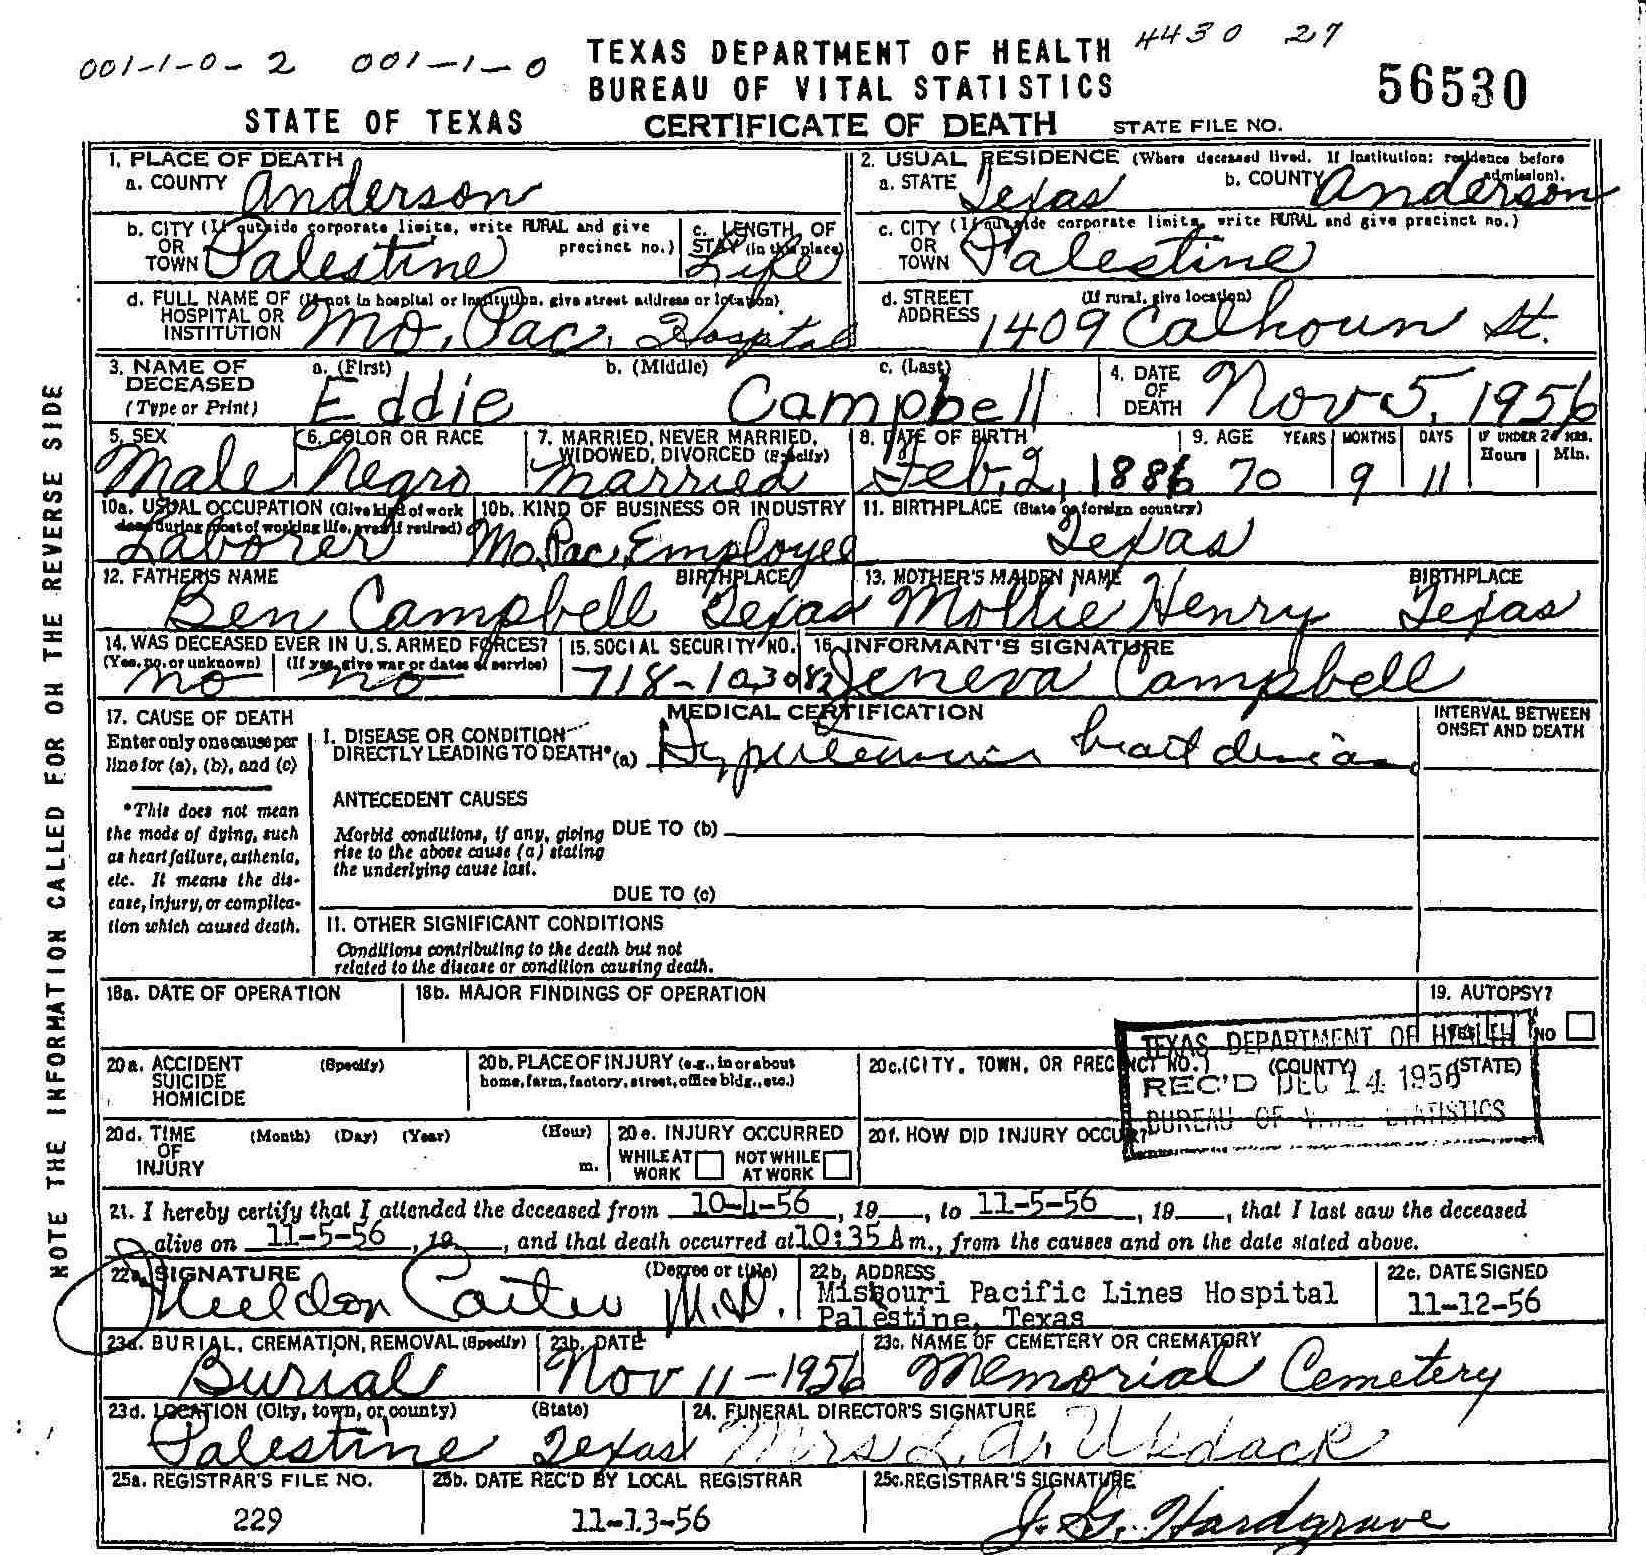 001-1-0-2 001-1-0 TEXAS DEPARTMENT OF HEALTH 4430 27
BUREAU OF VITAL STATISTICS 56530
STATE OF TEXAS CERTIFICATE OF DEATH STATE FILE NO.
NOTE THE INFORMATION CALLED FOR ON THE REVERSE SIDE
1. PLACE OF DEATH
a. COUNTY Anderson
2. USUAL RESIDENCE (Where deceased lived. If institution: residence before admission).
a. STATE Texas b. COUNTY Anderson
b. CITY (If outside corporate limits, write RURAL and give precinct no.)
OR TOWN Palestine
c. LENGTH OF STAY (in this place) Life
c. CITY (If outside corporate limits, write RURAL and give precinct no.)
OR TOWN Palestine
d. FULL NAME OF (If not in hospital or institution, give street address or location)
HOSPITAL OR INSTITUTION Mo. Pac. Hospital
d. STREET ADDRESS (If rural, give location) 1409 Calhoun St.
3. NAME OF DECEASED (Type or Print) a. (First) Eddie b. (Middle) c. (Last) Campbell
4. DATE OF DEATH Nov 5, 1956
5. SEX Male
6. COLOR OR RACE Negro
7. MARRIED, NEVER MARRIED, WIDOWED, DIVORCED (Specify) married
8. DATE OF BIRTH Feb. 2, 1886
9. AGE YEARS 70 MONTHS 9 DAYS 11 IF UNDER 24 HRS. Hours Min.
10a. USUAL OCCUPATION (Give kind of work done during most of working life, even if retired) Laborer
10b. KIND OF BUSINESS OR INDUSTRY Mo. Pac. Employee
11. BIRTHPLACE (State or foreign country) Texas
12. FATHER'S NAME Ben Campbell BIRTHPLACE Texas
13. MOTHER'S MAIDEN NAME Mollie Henry BIRTHPLACE Texas
14. WAS DECEASED EVER IN U.S. ARMED FORCES?
(Yes, no, or unknown) no (If yes, give war or dates of service) no
15. SOCIAL SECURITY NO.
16. INFORMANT'S SIGNATURE Geneva Campbell
17. CAUSE OF DEATH
Enter only one cause per
line for (a), (b), and (c)
*This does not mean
the mode of dying, such
as heart failure, asthenia,
etc. It means the dis-
ease, injury, or complica-
tion which caused death.
MEDICAL CERTIFICATION
INTERVAL BETWEEN ONSET AND DEATH
I. DISEASE OR CONDITION
DIRECTLY LEADING TO DEATH* (a) heart disease
ANTECEDENT CAUSES
Morbid conditions, if any, giving DUE TO (b)
rise to the above cause (a) stating
the underlying cause last.
DUE TO (c)
II. OTHER SIGNIFICANT CONDITIONS
Conditions contributing to the death but not
related to the disease or condition causing death.
18a. DATE OF OPERATION
18b. MAJOR FINDINGS OF OPERATION
19. AUTOPSY? YES NO
TEXAS DEPARTMENT OF HEALTH
REC'D DEC 14 1956
BUREAU OF VITAL STATISTICS
20a. ACCIDENT (Specify)
SUICIDE
HOMICIDE
20b. PLACE OF INJURY (e.g., in or about
home, farm, factory, street, office bldg., etc.)
20c. (CITY, TOWN, OR PRECINCT NO.) (COUNTY) (STATE)
20d. TIME OF INJURY (Month) (Day) (Year) (Hour) m.
20e. INJURY OCCURRED
WHILE AT WORK NOT WHILE AT WORK
20f. HOW DID INJURY OCCUR?
21. I hereby certify that I attended the deceased from 10-1-56, 19__, to 11-5-56, 19__, that I last saw the deceased
alive on 11-5-56, 19__, and that death occurred at 10:35 A m., from the causes and on the date stated above.
22a. SIGNATURE (Degree or title) Sheldon Carter M.D.
22b. ADDRESS Missouri Pacific Lines Hospital
Palestine, Texas
22c. DATE SIGNED 11-12-56
23a. BURIAL, CREMATION, REMOVAL (Specify) Burial
23b. DATE Nov 11-1956
23c. NAME OF CEMETERY OR CREMATORY Memorial Cemetery
23d. LOCATION (City, town, or county) (State) Palestine Texas
24. FUNERAL DIRECTOR'S SIGNATURE Mrs. L. A.
25a. REGISTRAR'S FILE NO. 229
25b. DATE REC'D BY LOCAL REGISTRAR 11-13-56
25c. REGISTRAR'S SIGNATURE J. G. Hardgrave